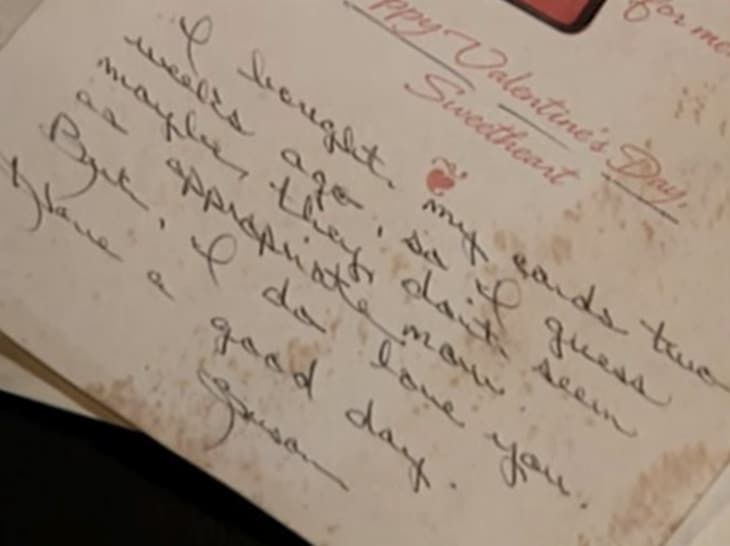 for me
ppy Valentine's Day,
Sweetheart
I bought my cards two
weeks ago, so I guess
maybe they don't seem
as appropriate now.
But, I do love you.
Have a good day.
Susan